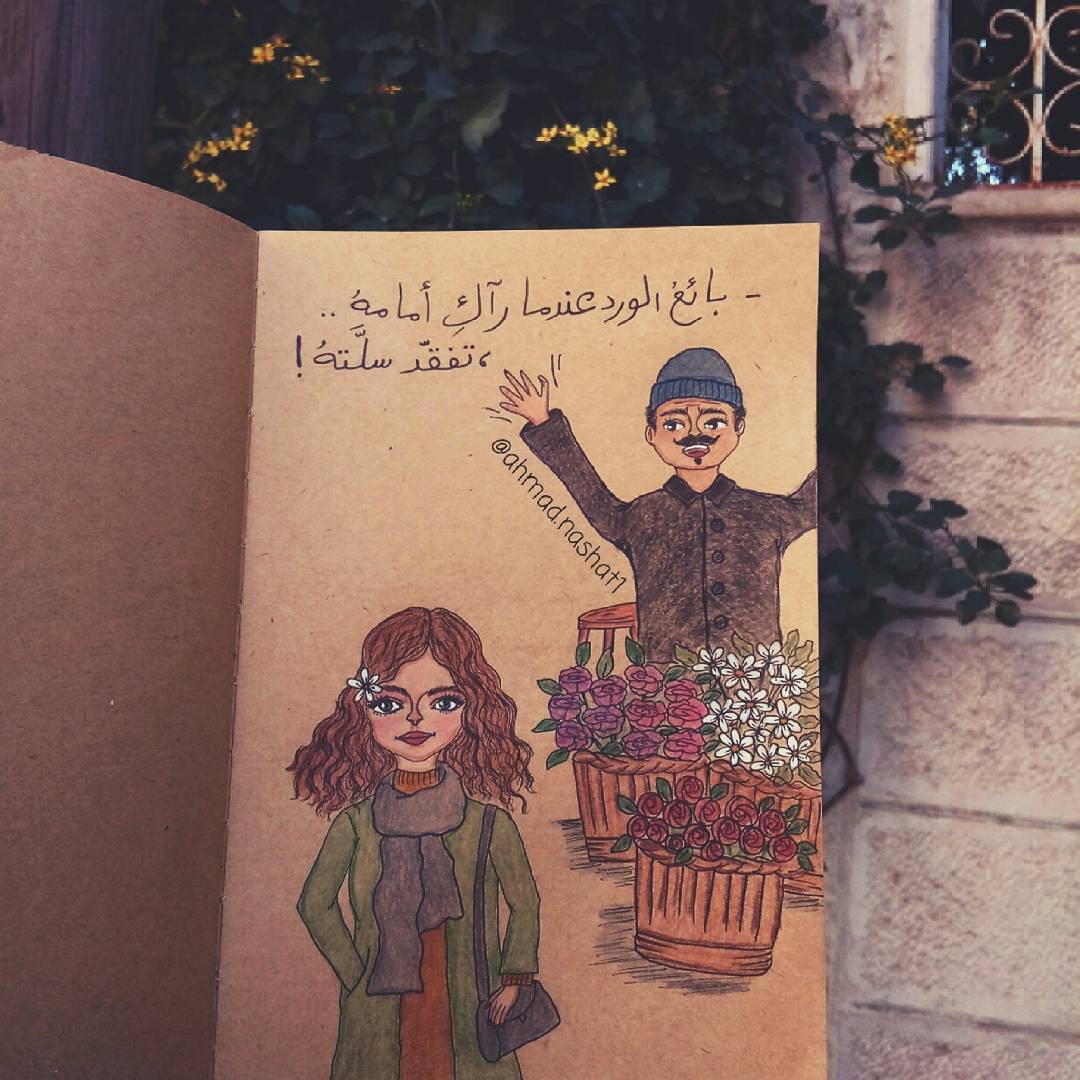 - بائعُ الورد عندما رآكِ أمامهُ ..
، تفقدّ سلَّتهُ !
@ahmad.nashat1